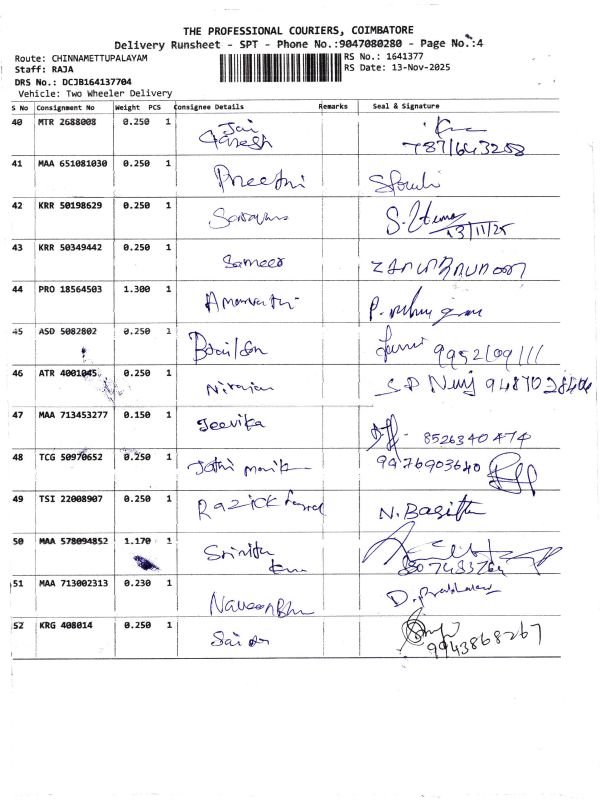 THE PROFESSIONAL COURIERS, COIMBATORE
Delivery Runsheet - SPT - Phone No.:9047080280 - Page No.:4
Route: CHINNAMETTUPALAYAM
RS No.: 1641377
Staff: RAJA
RS Date: 13-Nov-2025
DRS No.: DCJB164137704
Vehicle: Two Wheeler Delivery
S No Consignment No Weight PCS Consignee Details Remarks Seal & Signature
40 MTR 2688008 0.250 1 Jai Ganesh
41 MAA 651081030 0.250 1 Preethi
42 KRR 50198629 0.250 1 13/11/25
43 KRR 50349442 0.250 1 Sameer
44 PRO 18564503 1.300 1
45 ASD 5082802 0.250 1 9952109111
46 ATR 4001045 0.250 1 Niranjan 9487028404
47 MAA 713453277 0.150 1 Jeevika 8526340474
48 TCG 50970652 0.250 1 9976903640
49 TSI 22008907 0.250 1 N. Basith
50 MAA 578094852 1.170 1
51 MAA 713002313 0.230 1
52 KRG 408014 0.250 1 9943868267